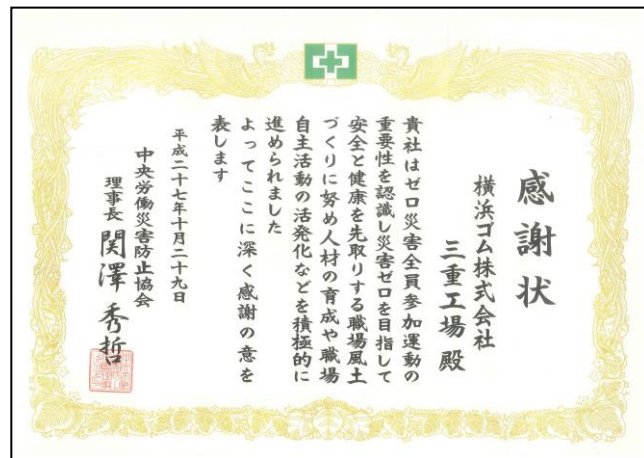 感謝状
横浜ゴム株式会社
三重工場殿
貴社はゼロ災害全員参加運動の
重要性を認識し災害ゼロを目指して
安全と健康を先取りする職場風土
づくりに努め人材の育成や職場
自主活動の活発化などを積極的に
進められました
よってここに深く感謝の意を
表します
平成二十七年十月二十九日
中央労働災害防止協会
理事長 関澤秀哲